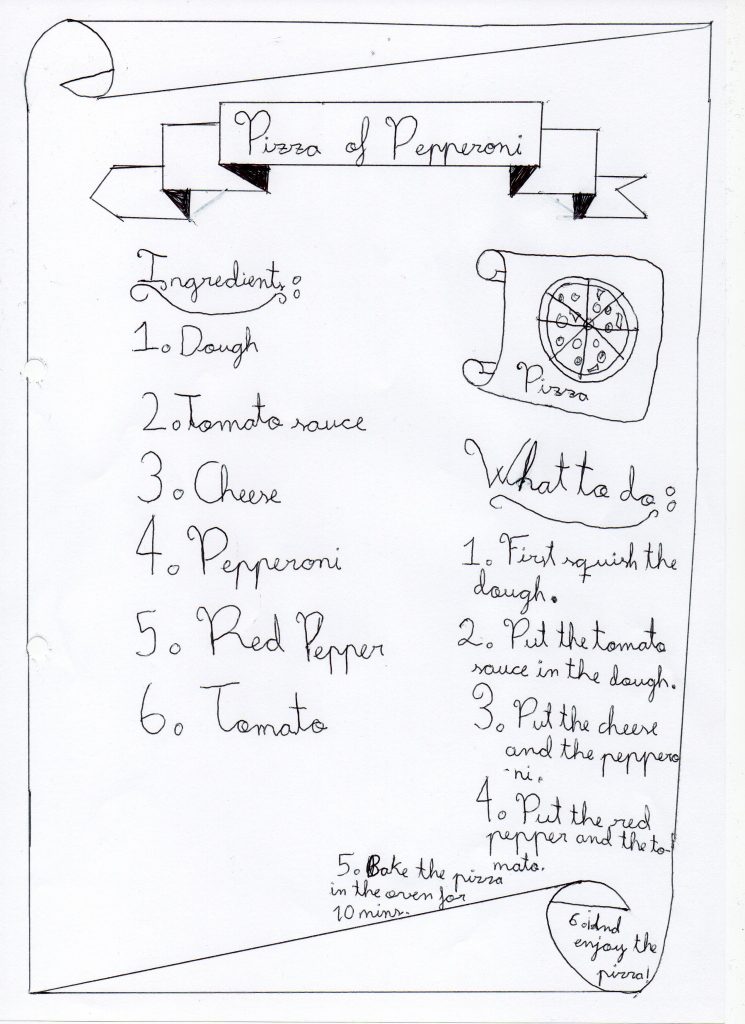 Pizza of Pepperoni
Ingredients:
1. Dough
2. Tomato sauce
3. Cheese
4. Pepperoni
5. Red Pepper
6. Tomato
Pizza
What to do:
1. First squish the
dough.
2. Put the tomato
sauce in the dough.
3. Put the cheese
and the peppero
-ni.
4. Put the red
pepper and the to-
mato.
5. Bake the pizza
in the oven for
10 mins.
6. And
enjoy the
pizza!